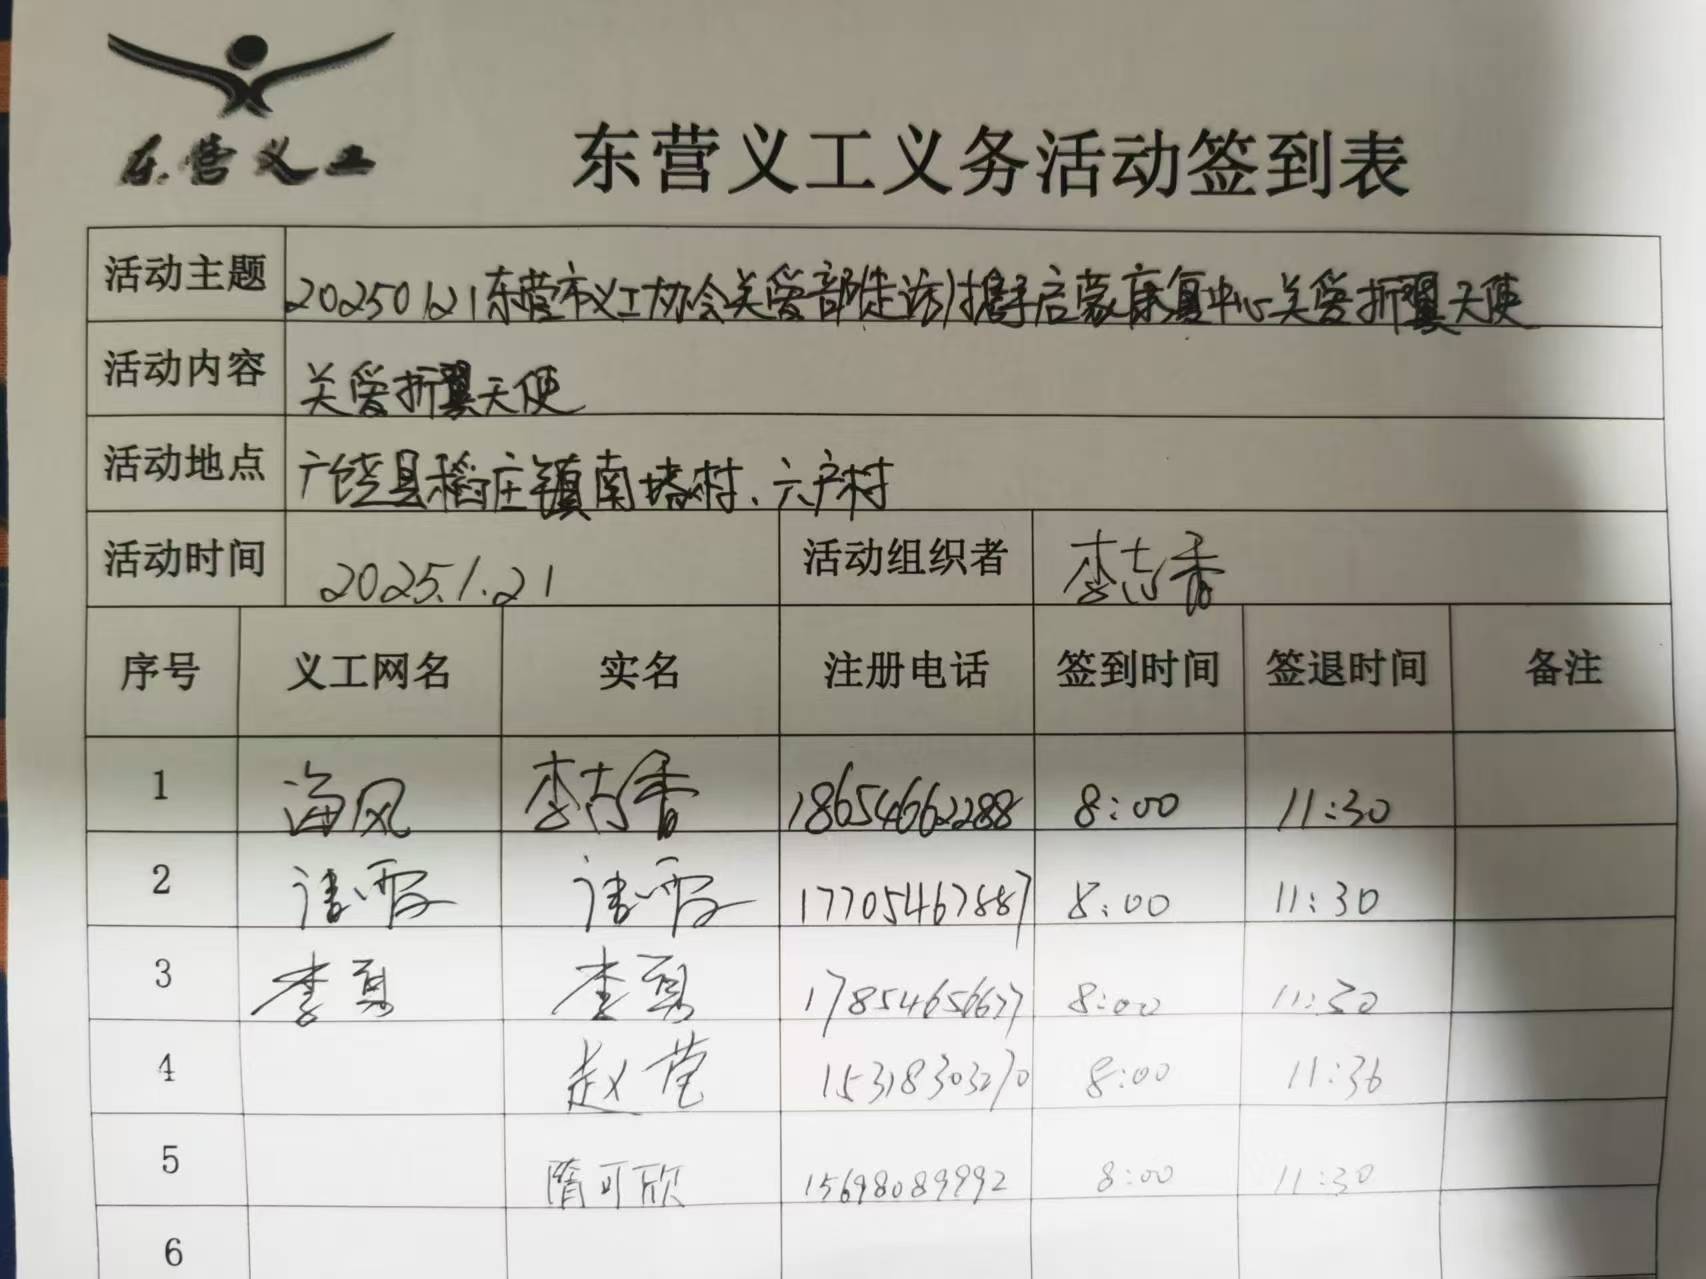 东营义工
东营义工义务活动签到表
活动主题 20250121东营市义工协会关爱部(走访)携手启蒙康复中心关爱折翼天使
活动内容 关爱折翼天使
活动地点 广饶县稻庄镇南塔村、六户村
活动时间 2025.1.21 活动组织者 李志香
序号 义工网名 实名 注册电话 签到时间 签退时间 备注
1 海风 李志香 18654662288 8:00 11:30
2 17705467887 8:00 11:30
3 李勇 李勇 17854656677 8:00 11:30
4 赵莹 15318303270 8:00 11:36
5 隋可欣 15698089992 8:00 11:30
6